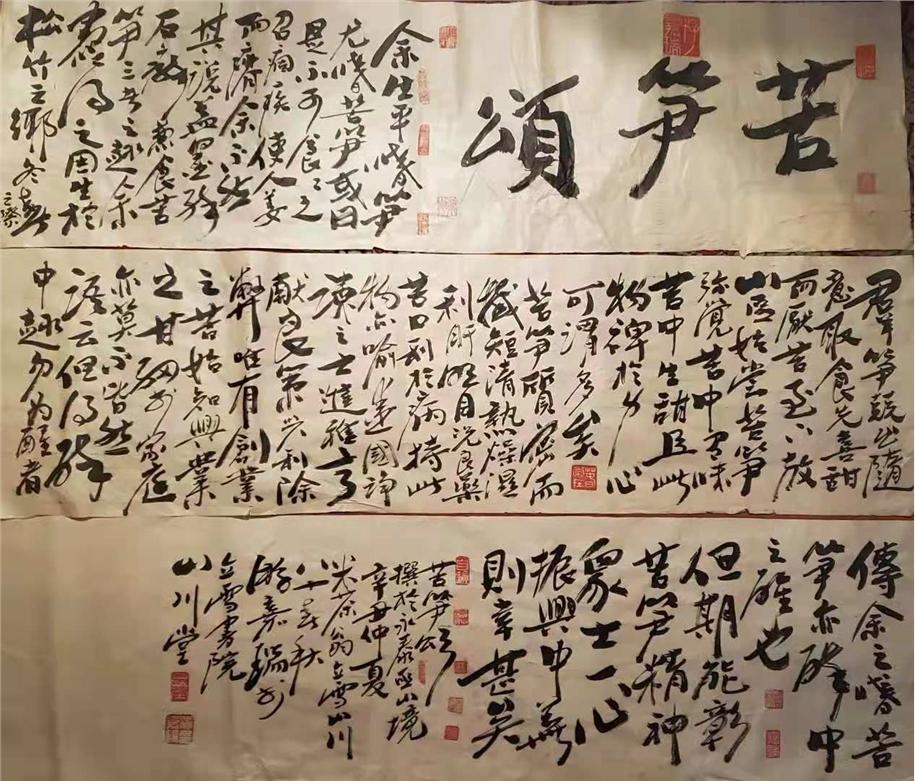 苦笋頌
余生平嗜笋
尤嗜苦笋或曰
是不可食食之
召痼疾使人萎
而瘠余不然
其說蓋
石
笋三者之趣余
盡得之因生於
松竹之鄉冬春
之際
群笋競出隨
意取食先喜甜
而厭苦
山區始嘗苦笋
弥覺苦中有味
苦中生甜且此
物裨於身心
可謂多矣
苦笋質密而
纖短清熱燥濕
利肝明目況良藥
苦口利於病持此
物亦喻进國諍
諫之士進雅言
獻良策兴利除
弊唯有創業
之苦始知興業
之甘
亦莫不皆然
諺云但得醉
中趣勿为醒者
傳余之嗜苦
笋亦醉中
之醒也
但期能彰
苦笋精神
眾士一心
振興中華
則幸甚矣
苦笋公
撰於永泰巫山境
辛丑仲夏
米茶翁立雪山川
八十春秋
游嘉瑞於
立雪書院
山川堂